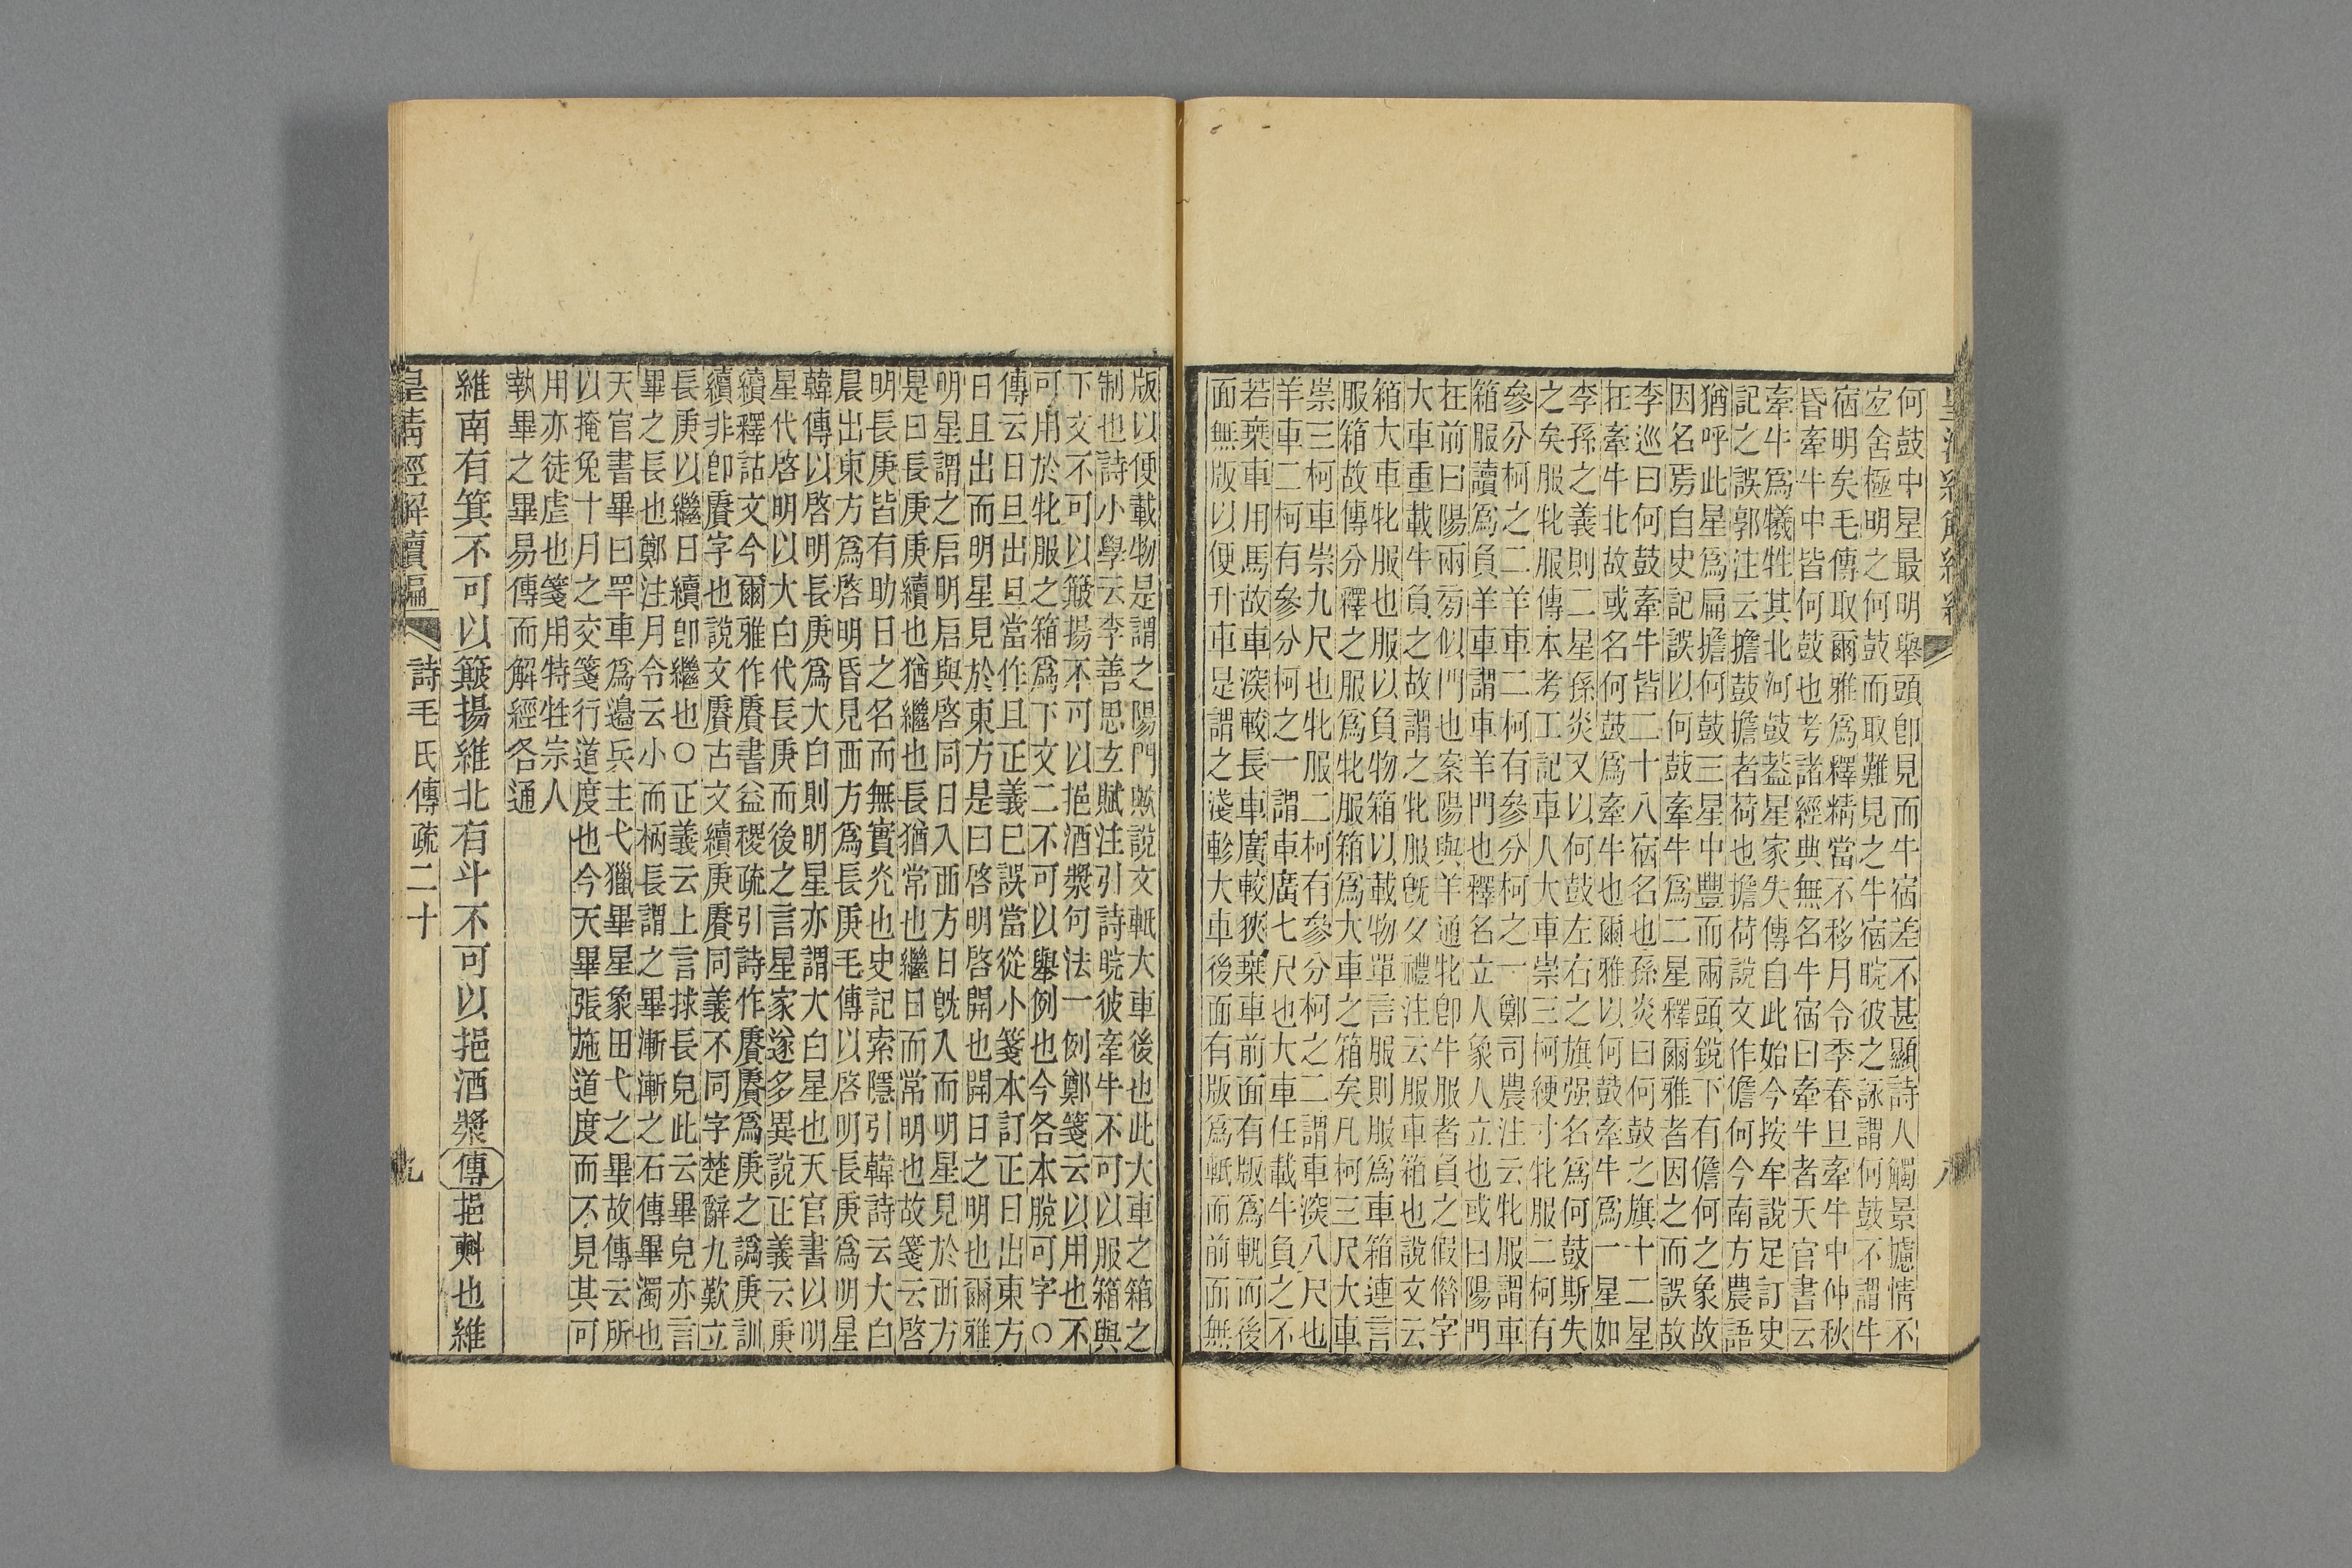 何鼓中星最明舉頭卽見而牛宿差不甚顯詩人觸景攄情不
宐舍極明之何鼓而取難見之牛宿睆彼之詠謂何鼓不謂牛
宿明矣毛傳取爾雅爲釋精當不移月令季春旦牽牛中仲秋
昏牽牛中皆何鼓也考諸經典無名牛宿曰牽牛者天官書云
牽牛爲犧牲其北河鼓葢星家失傳自此始今按牟說足訂史
記之誤郭注云擔鼓擔者荷也擔荷說文作儋何今南方農語
猶呼此星爲扁擔何鼓三星中豐而兩頭銳下有儋何之象故
因名焉自史記誤以何鼓牽牛爲二星釋爾雅者因之而誤故
李巡曰何鼓牽牛皆二十八宿名也孫炎曰何鼓之旗十二星
在牽牛北故或名何鼓爲牽牛也爾雅以何鼓牽牛爲一星如
李孫之義則二星孫炎又以何鼓左右之旗强名爲何鼓斯失
之矣服牝服傳本考工記車人大車崇三柯綆寸牝服二柯有
參分柯之二羊車二柯有參分柯之一鄭司農注云牝服謂車
箱服讀爲負羊車謂車羊門也釋名立人象人立也或曰陽門
在前曰陽兩旁似門也案陽與羊通牝卽牛服者負之假俗字
大車重載牛負之故謂之牝服旣夕禮注云服車箱也說文云
箱大車牝服也服以負物箱以載物單言服則服爲車箱連言
服箱故傳分釋之服爲牝服箱爲大車之箱矣凡柯三尺大車
崇三柯車崇九尺也牝服二柯有參分柯之二謂車深八尺也
羊車二柯有參分柯之一謂車廣七尺也大車任載牛負之不
若椉車用馬故車深較長車廣較狹椉車前面有版爲軓而後
面無版以便升車是謂之淺軫大車後面有版爲軧而前面無
版以便載物是謂之陽門歟說文軧大車後也此大車之箱之
制也詩小學云李善思玄賦注引詩睆彼牽牛不可以服箱與
下文不可以簸揚不可以挹酒漿句法一例鄭箋云以用也不
可用於牝服之箱爲下文二不可以舉例也今各本脫可字○
傳云日旦出旦當作且正義已誤當從小箋本訂正日出東方
日且出而明星見於東方是曰啓明啓開也開日之明也爾雅
明星謂之启明启與啓同日入西方日旣入而明星見於西方
是曰長庚庚續也猶繼也長猶常也繼日而常明也故箋云啓
明長庚皆有助日之名而無實光也史記索隱引韓詩云大白
晨出東方爲啓明昏見西方爲長庚毛傳以啓明長庚爲明星
韓傳以啓明長庚爲大白則明星亦謂大白星也天官書以明
星代啓明以大白代長庚而後之言星家遂多異說正義云庚
續釋詁文今爾雅作賡書益稷疏引詩作賡賡爲庚之譌庚訓
續非卽賡字也說文賡古文續庚賡同義不同字楚辭九歎立
長庚以繼日續卽繼也○正義云上言捄長皃此云畢皃亦言
畢之長也鄭注月令云小而柄長謂之畢漸漸之石傳畢濁也
天官書畢曰罕車爲邉兵主弋獵畢星象田弋之畢故傳云所
以掩兔十月之交箋行道度也今天畢張施道度而不見其可
用亦徒虛也箋用特牲宗人
執畢之畢易傳而解經各通
維南有箕不可以簸揚維北有斗不可以挹酒漿傳挹㪺也維
皇淸經解續編 詩毛氏傳疏二十 九